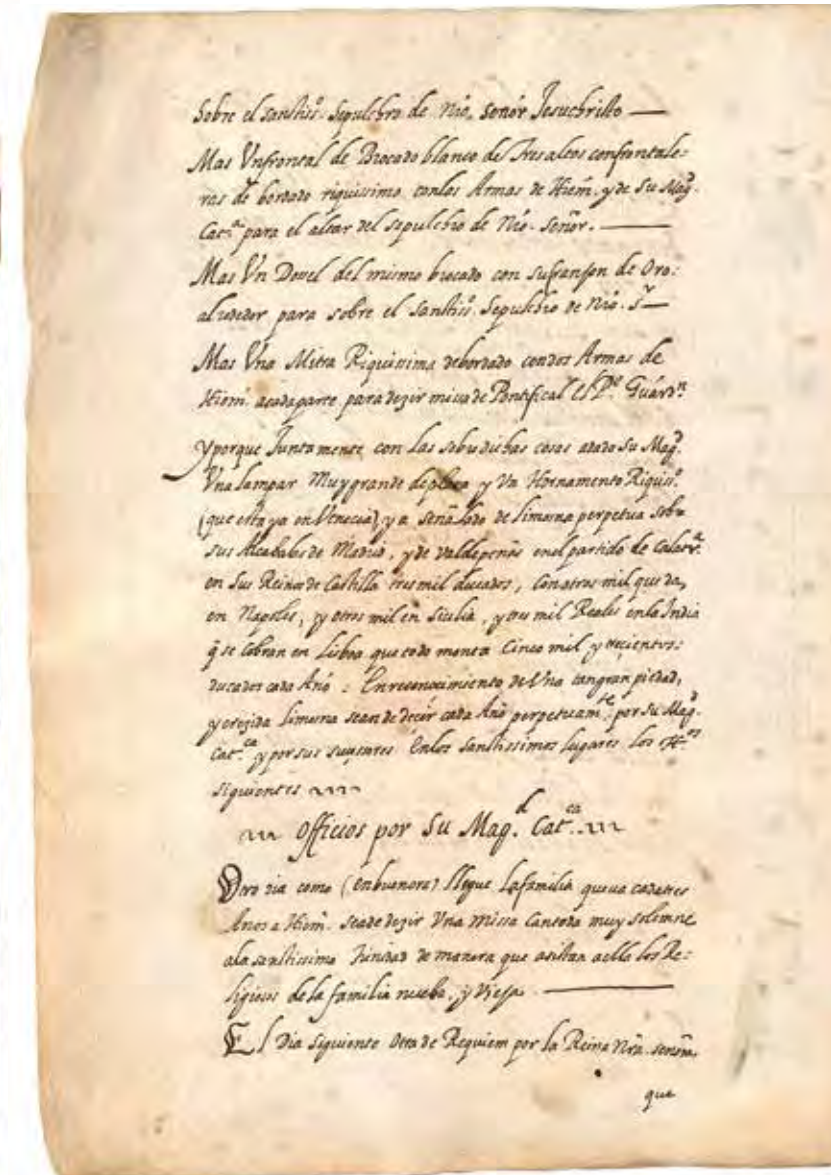 Sobre el sanctiss.º Sepulchro de Nro. señor Jesuchristo —
Mas Un frontal de Brocado blanco de Tres altos con frontale-
ras de bordado riquissimo con las Armas de Hierm. y de Su Mag.
Cat.ca para el altar del sepulchro de Nro. Señor. —
Mas Un Dosel del mismo brocado con su franjon de Oro:
al rededor para sobre el Sanctiss.º Sepulchro de Nro. S.r —
Mas Una Mitra Riquissima de bordado con dos Armas de
Hierm. a cada parte para dezir missa de Pontifical El P.e Guard.n
Y porque Juntamente con las sobredichas cosas a dado Su Mag.d
Una lampar Muy grande de plata y Un Hornamento Riquiss.º
(que esta ya en Venecia), y a señalado de limosna perpetua sobre
sus Alcabalas de Madrid, y de Valdepeñas en el partido de Calatr.a
en Sus Reinos de Castilla tres mil ducados, con otros mil que da,
en Napoles, y otros mil en Sicilia, y tres mil Reales en la India
q̃ se cobran en Lisboa que todo monta Cinco mil y trecientos:
ducados cada Año: En reconocimiento de Una tan gran piedad,
y crezida limosna sean de decir cada Año perpetuam.te por Su Mag.d
Cat.ca y por sus sucesores En los Sanctissimos lugares los
siguientes
Officios por Su Mag.d Cat.ca
Otro dia como (en buenora) llegue La familia que va cada tres
Anos a Hierm. se a de dezir Una Missa Cantada muy solemne
a la sanctissima Trinidad de manera que asistan a ella los Re-
ligiosos de la familia nueba, y Vieja. —
El Dia siguiente Otra de Requiem por la Reina Nra. señora.
que